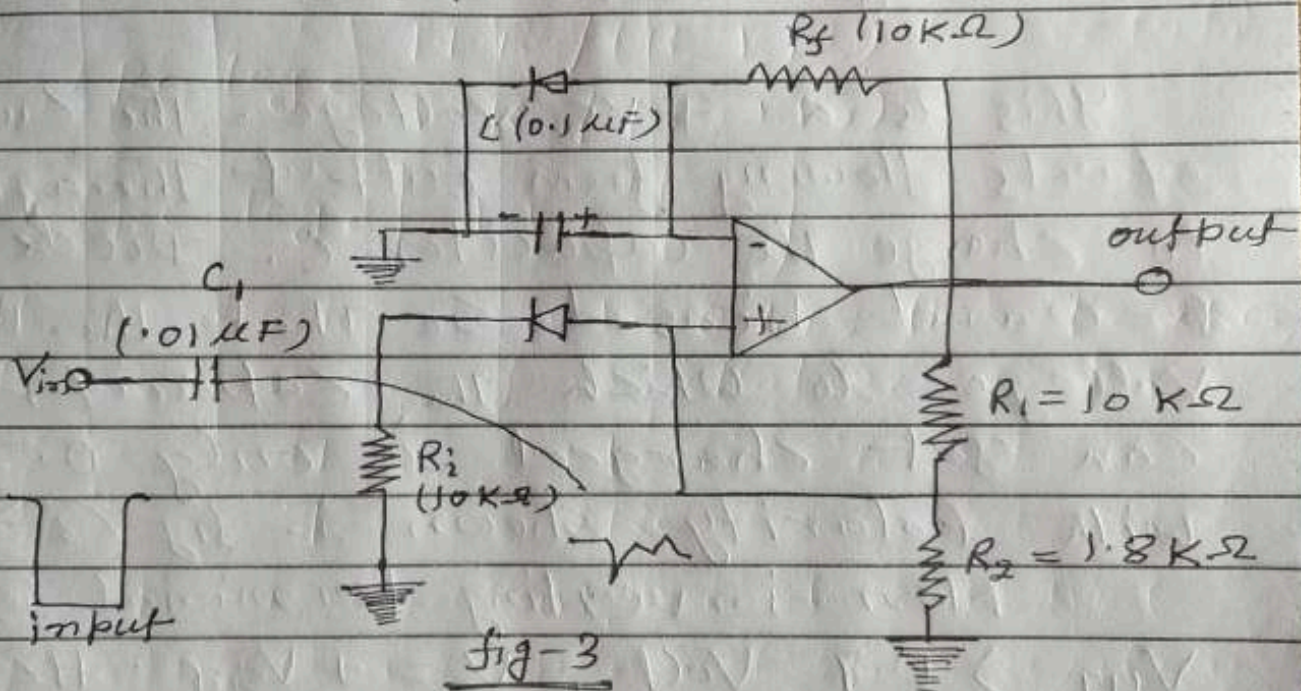 Rf (10KΩ)
C (0.1 μF)
- +
-
output
C1
(.01 μF)
+
Vin
R1 = 10 KΩ
Ri
(10KΩ)
R2 = 1.8KΩ
input
fig-3